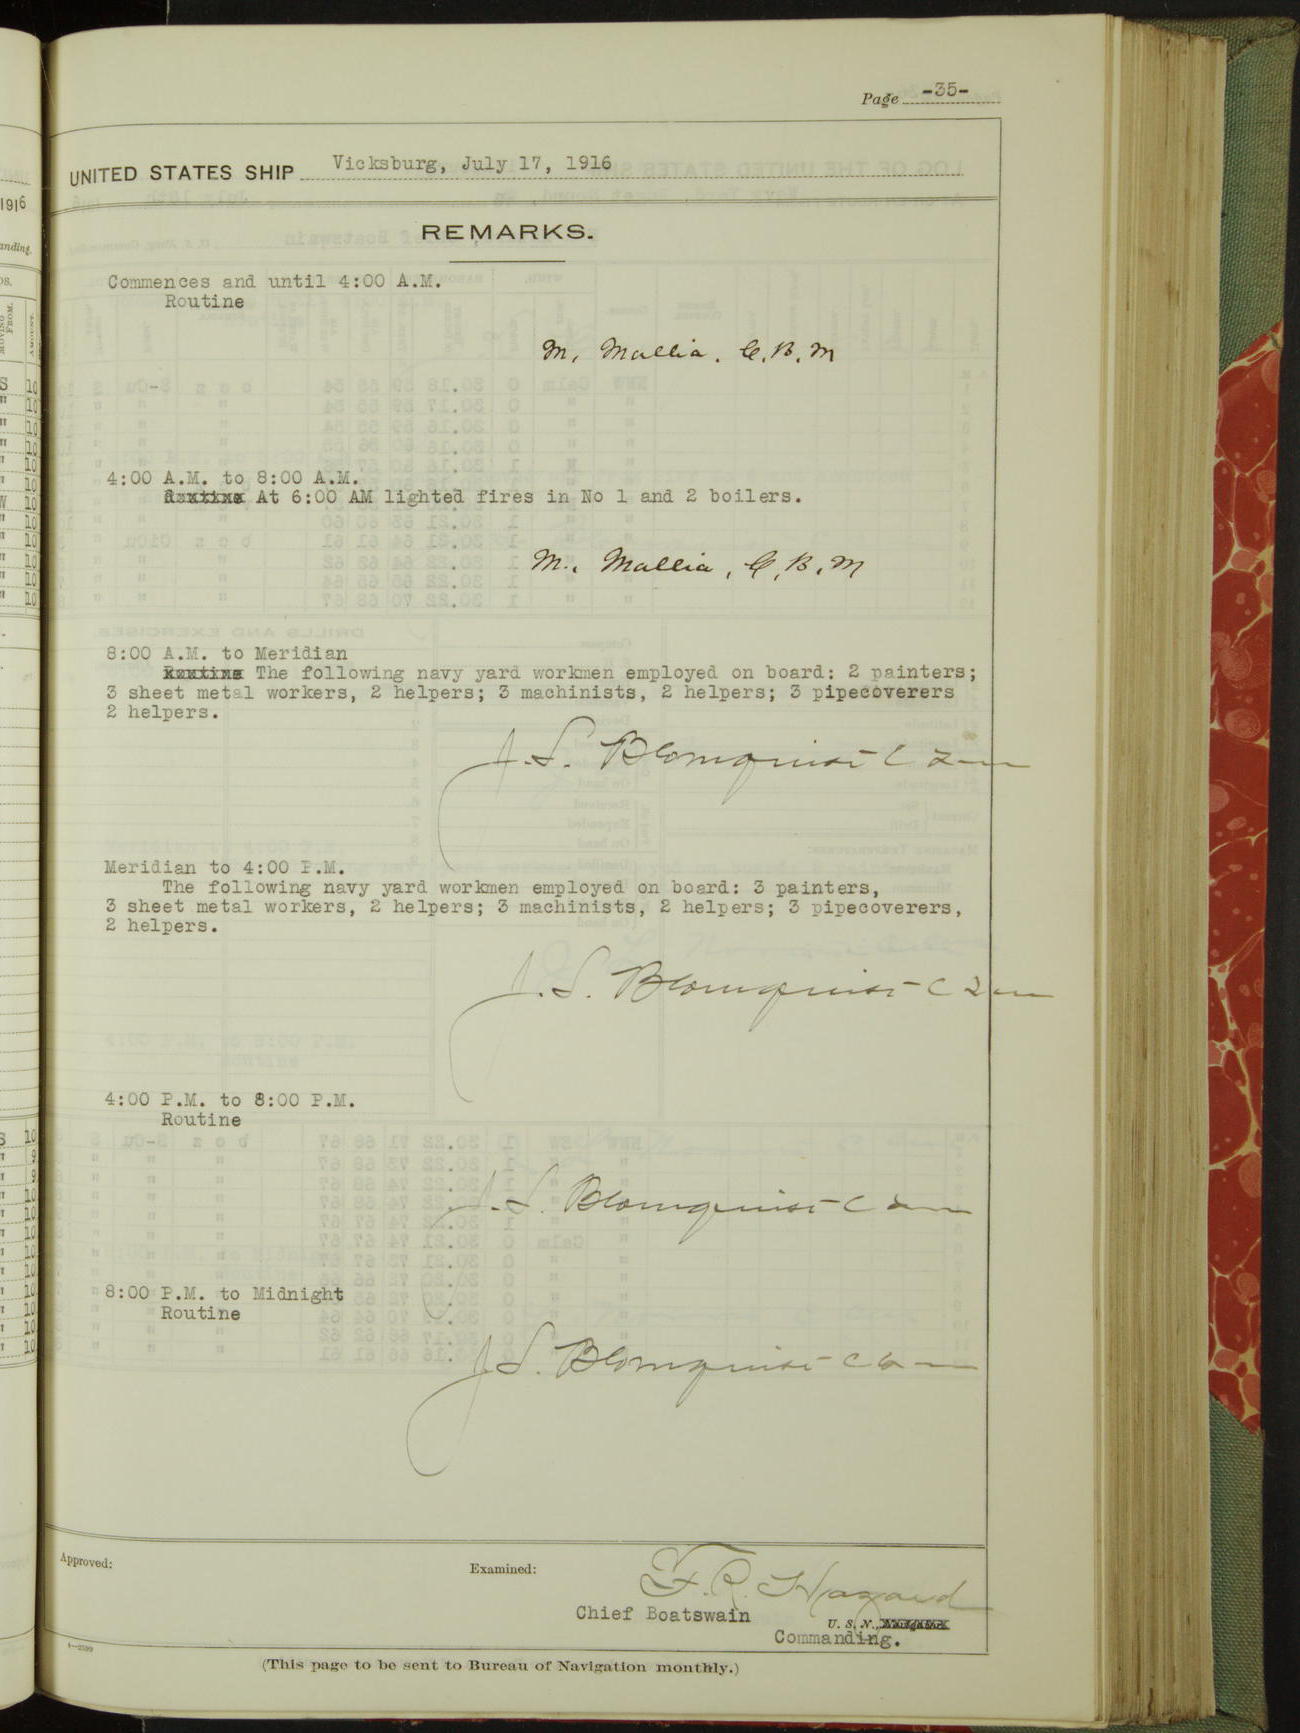 Page -35-
UNITED STATES SHIP Vicksburg, July 17, 1916
REMARKS.
Commences and until 4:00 A.M.
Routine
M. Mallia. C.B.M
4:00 A.M. to 8:00 A.M.
Routine At 6:00 AM lighted fires in No 1 and 2 boilers.
M. Mallia, C.B.M
8:00 A.M. to Meridian
Routine The following navy yard workmen employed on board: 2 painters;
3 sheet metal workers, 2 helpers; 3 machinists, 2 helpers; 3 pipecoverers
2 helpers.
J.S. Blomquist
Meridian to 4:00 P.M.
The following navy yard workmen employed on board: 3 painters,
3 sheet metal workers, 2 helpers; 3 machinists, 2 helpers; 3 pipecoverers,
2 helpers.
J.S. Blomquist
4:00 P.M. to 8:00 P.M.
Routine
J.S. Blomquist
8:00 P.M. to Midnight
Routine
J.S. Blomquist
Approved:
Examined:
F.R. Hazard
Chief Boatswain
U. S. N.,
Commanding.
(This page to be sent to Bureau of Navigation monthly.)